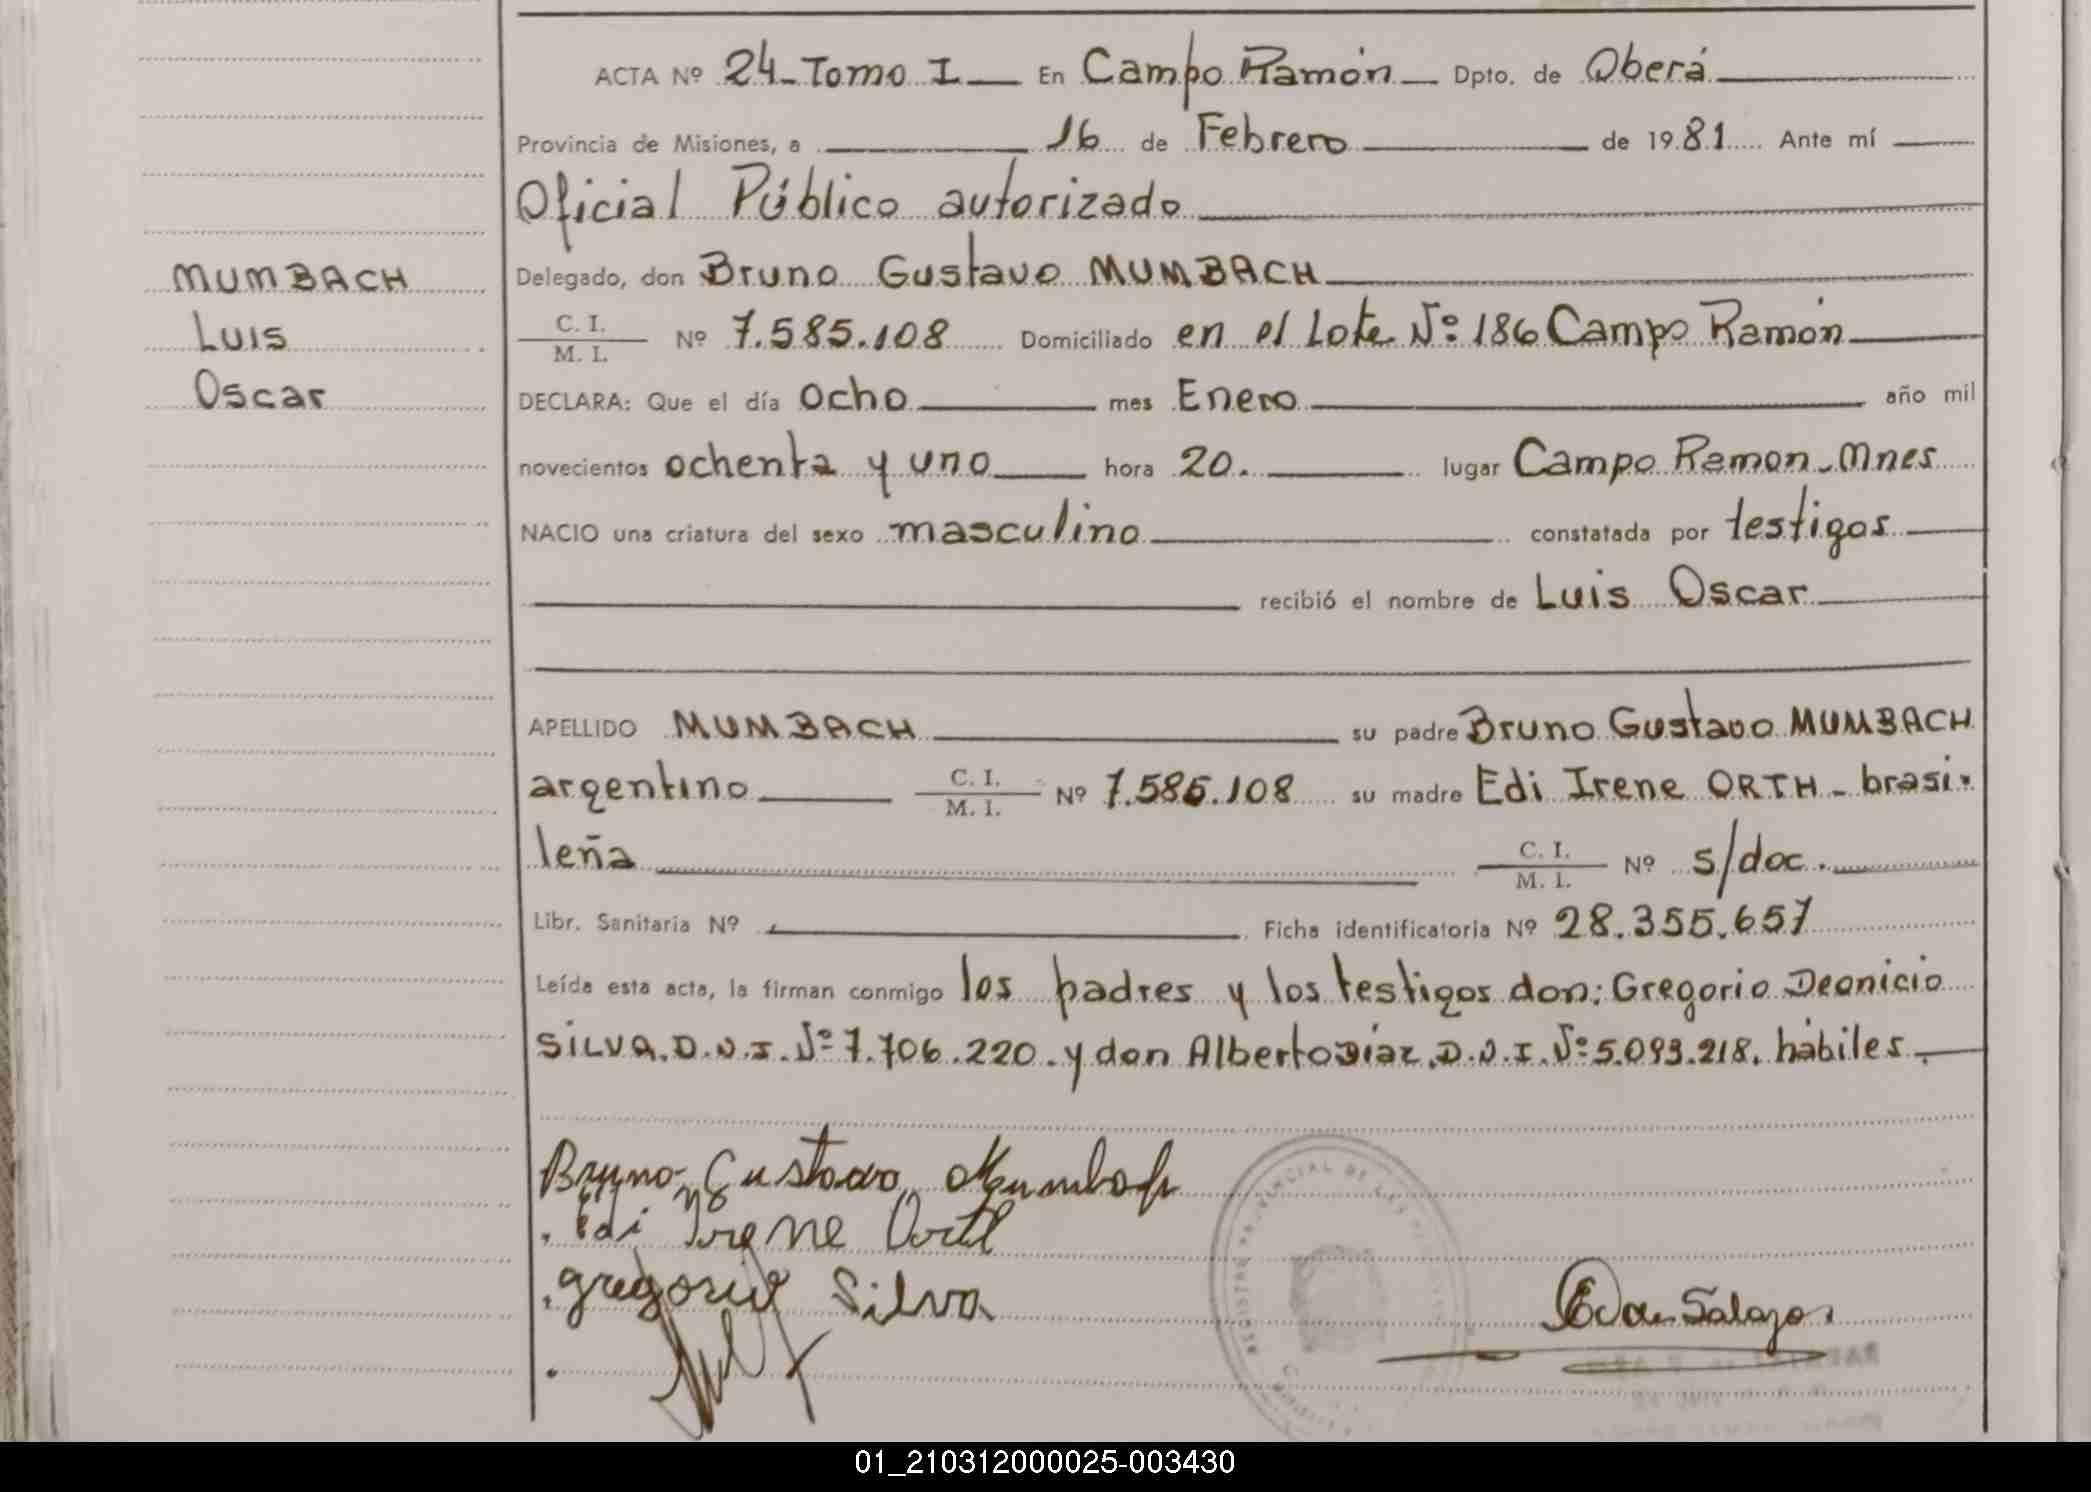 ACTA Nº 24-Tomo I En Campo Ramón Dpto. de Oberá
Provincia de Misiones, a 16 de Febrero de 1981 Ante mí
Oficial Público autorizado
Delegado, don Bruno Gustavo MUMBACH
C. I.
M. I. Nº 7.585.108 Domiciliado en el Lote Nº 186 Campo Ramón
DECLARA: Que el día ocho mes Enero año mil
novecientos ochenta y uno hora 20. lugar Campo Ramon-Mnes
NACIO una criatura del sexo masculino constatada por testigos
recibió el nombre de Luis Oscar
APELLIDO MUMBACH su padre Bruno Gustavo MUMBACH
argentino C. I. M. I. Nº 7.585.108 su madre Edi Irene ORTH - brasi-
leña C. I. M. I. Nº s/doc.
Libr. Sanitaria Nº Ficha identificatoria Nº 28.355.657
Leída esta acta, la firman conmigo los padres y los testigos don: Gregorio Deonicio
SILVA. D.N.I. Nº 7.706.220. y don Alberto Diaz. D.N.I. Nº 5.093.218. hábiles.
MUMBACH
Luis
Oscar
Bruno Gustavo Mumbach
Edi Irene Orth
gregorio Silva
01_210312000025-003430